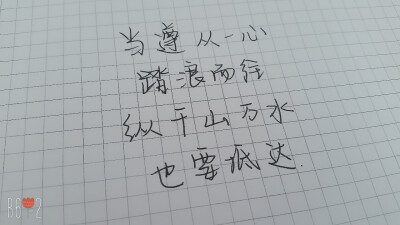 当遵从一心
踏浪而往
纵千山万水
也要抵达.